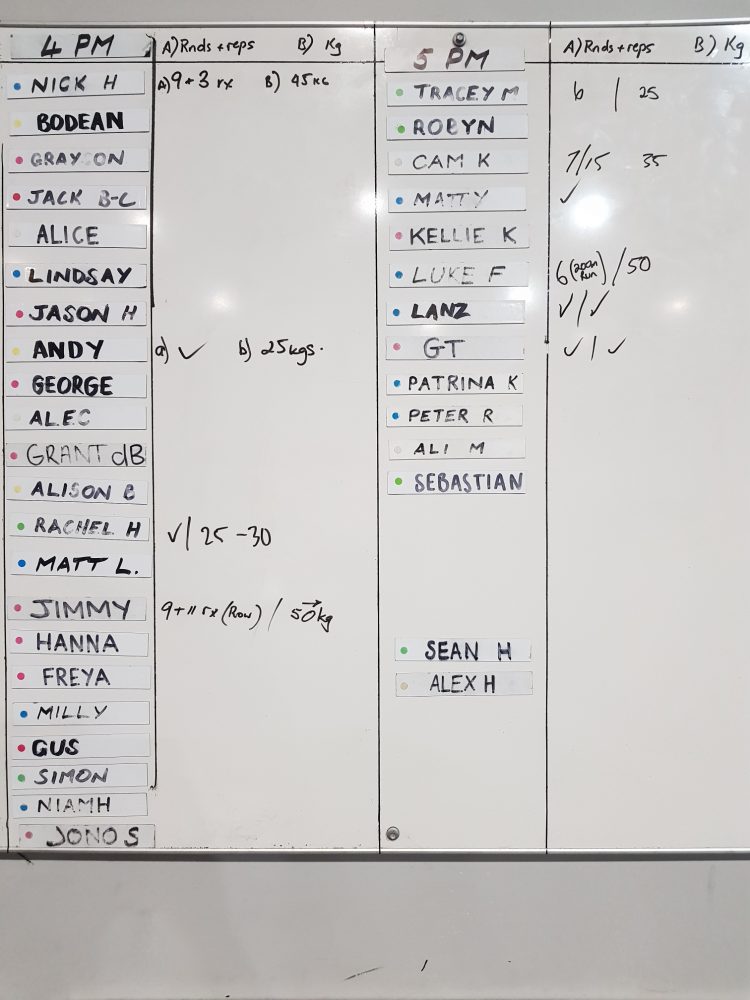 4 PM A) Rnds + reps B) Kg
NICK H A) 9 + 3 rx B) 45 KG
BODEAN
GRAYSON
JACK B-C
ALICE
LINDSAY
JASON H
ANDY a) ✓ b) 25 kgs.
GEORGE
ALEC
GRANT dB
ALISON B
RACHEL H ✓ | 25 - 30
MATT L.
JIMMY 9 + 11 rx (Row) / 50 kg
HANNA
FREYA
MILLY
GUS
SIMON
NIAMH
JONO S
5 PM A) Rnds + reps B) Kg
TRACEY M 6 | 25
ROBYN
CAM K 7/15 35
MATTY ✓
KELLIE K
LUKE F 6 (200m Run) / 50
LANZ ✓ / ✓
GT ✓ | ✓
PATRINA K
PETER R
ALI M
SEBASTIAN
SEAN H
ALEX H